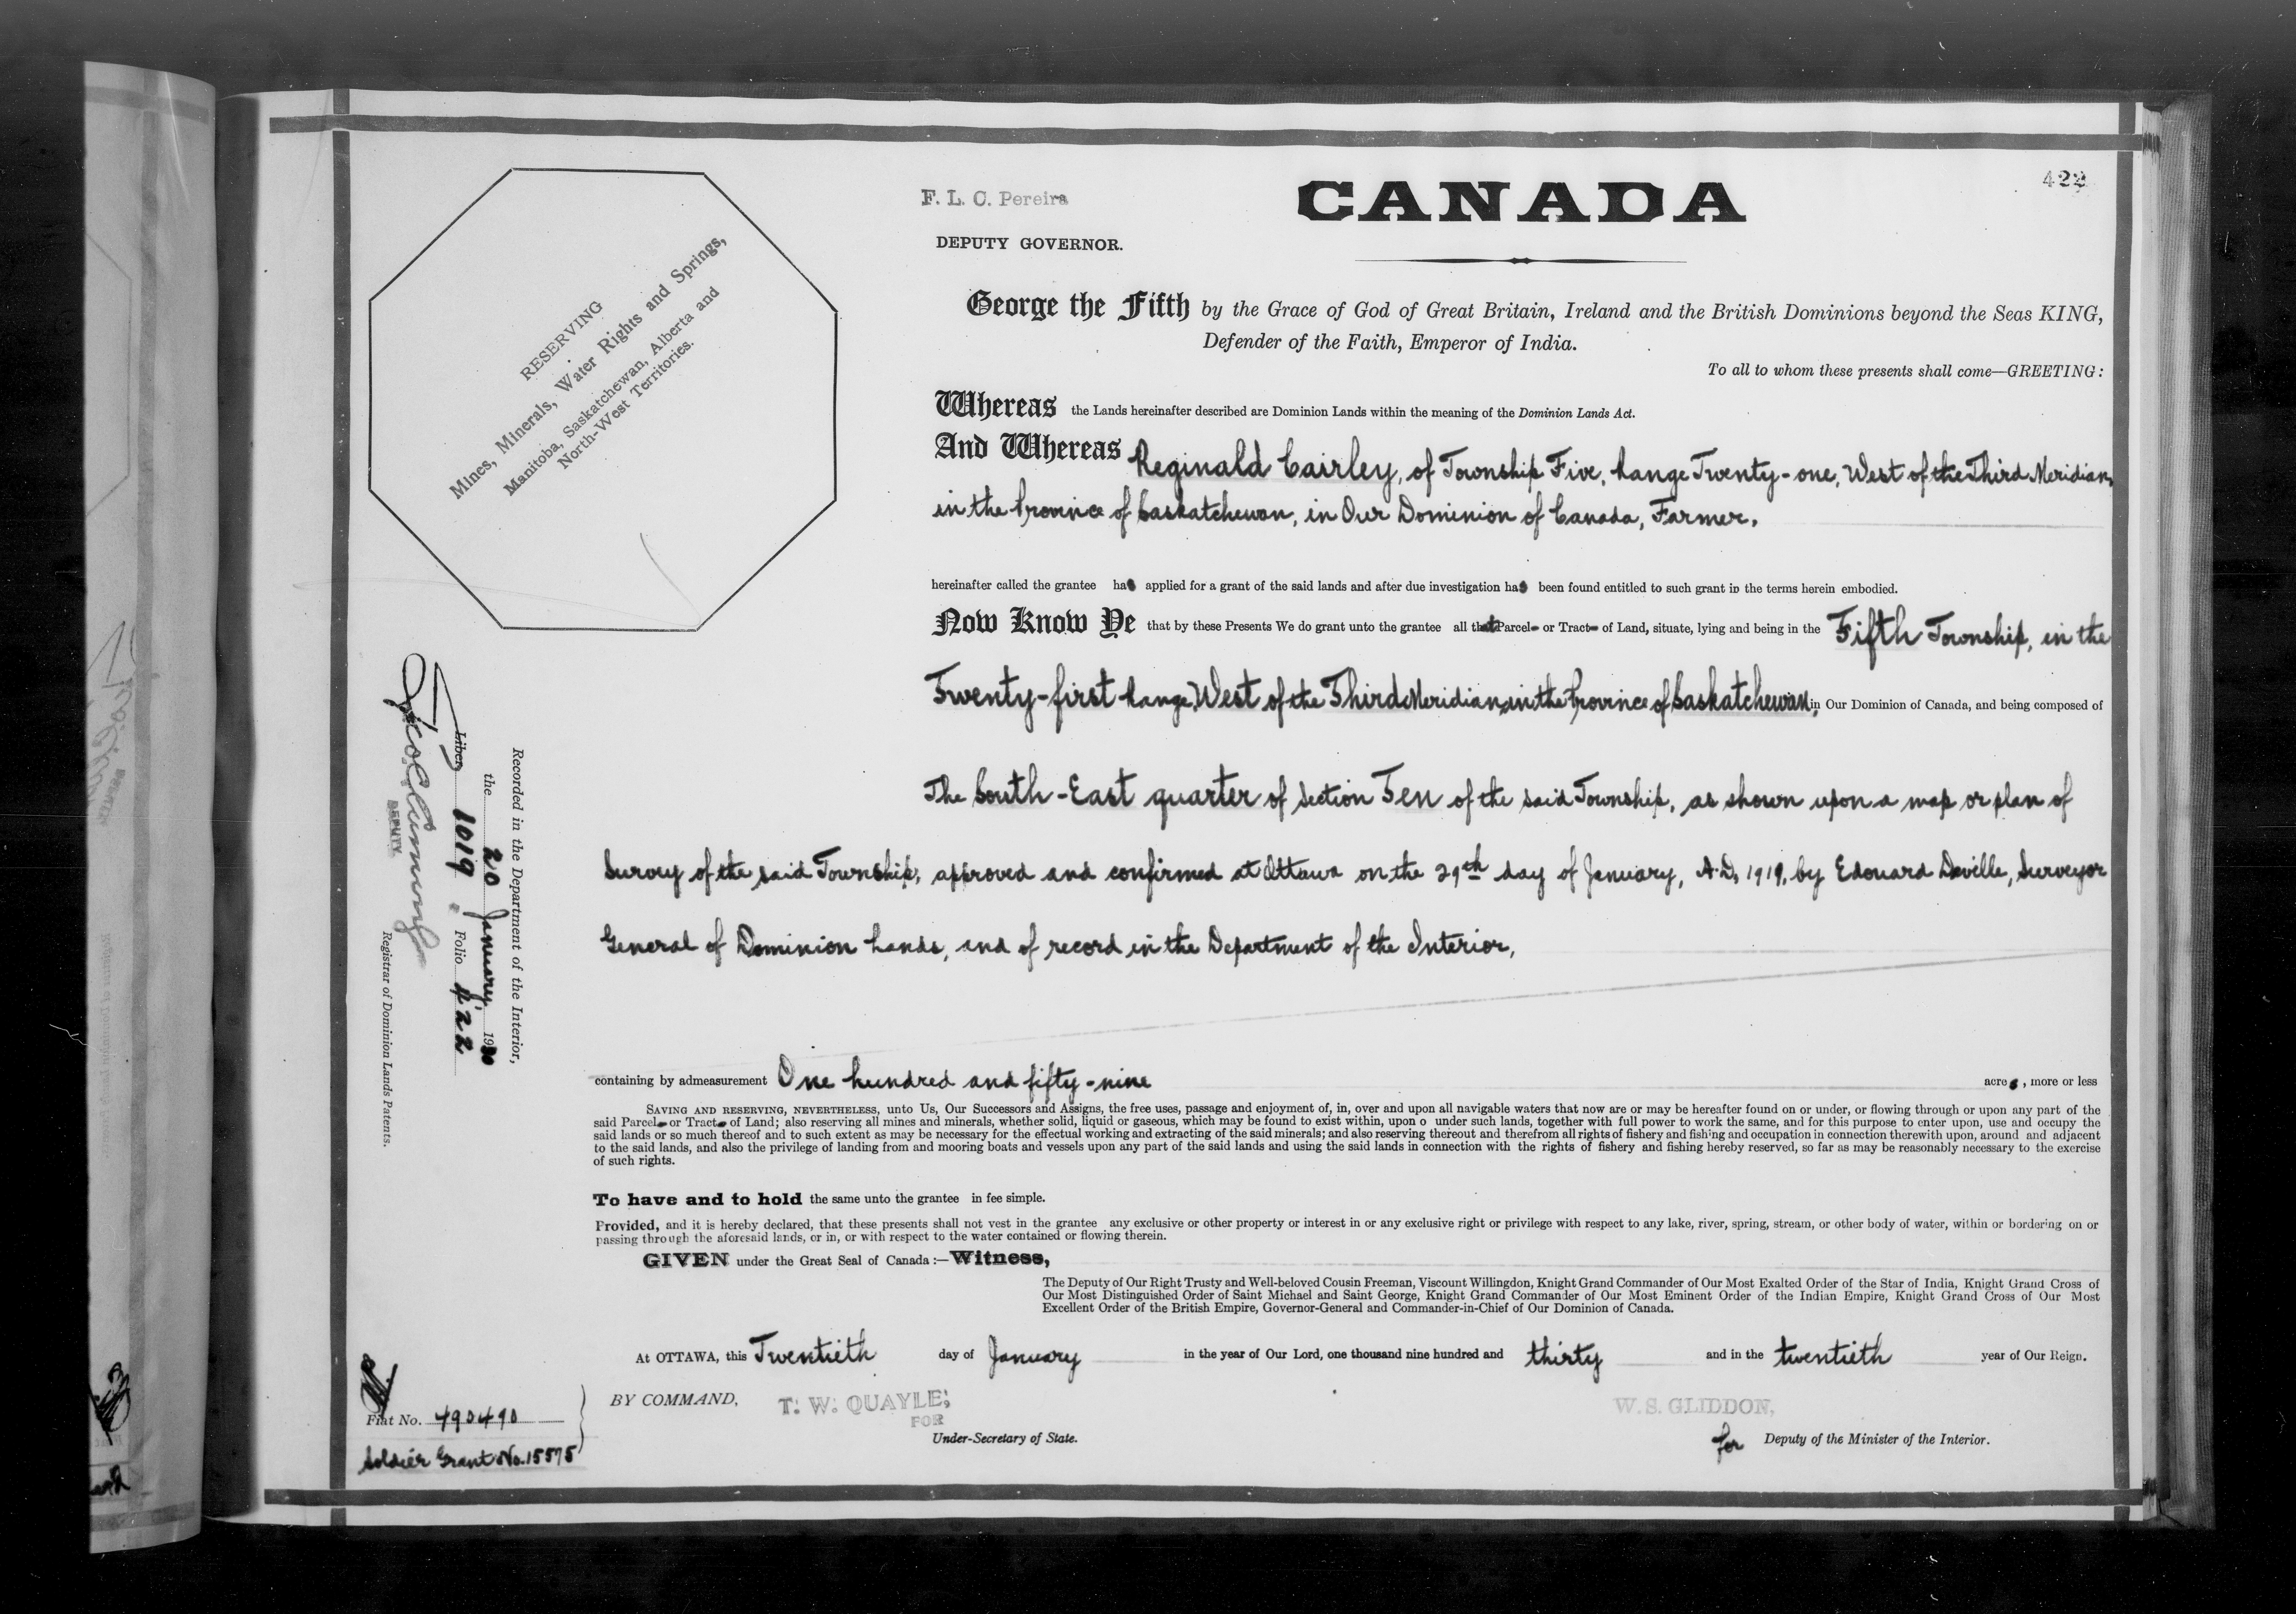 422
F. L. C. Pereira
DEPUTY GOVERNOR.
CANADA
RESERVING
Mines, Minerals, Water Rights and Springs,
Manitoba, Saskatchewan, Alberta and
North-West Territories.
George the Fifth by the Grace of God of Great Britain, Ireland and the British Dominions beyond the Seas KING,
Defender of the Faith, Emperor of India.
To all to whom these presents shall come—GREETING:
Whereas the Lands hereinafter described are Dominion Lands within the meaning of the Dominion Lands Act.
And Whereas Reginald Cairley, of Township Five, Range Twenty-one, West of the Third Meridian,
in the Province of Saskatchewan, in Our Dominion of Canada, Farmer,
hereinafter called the grantee has applied for a grant of the said lands and after due investigation has been found entitled to such grant in the terms herein embodied.
Now Know Ye that by these Presents We do grant unto the grantee all that Parcel or Tract of Land, situate, lying and being in the Fifth Township, in the
Twenty-first Range, West of the Third Meridian, in the Province of Saskatchewan, in Our Dominion of Canada, and being composed of
The South-East quarter of Section Ten of the said Township, as shown upon a map or plan of
Survey of the said Township, approved and confirmed at Ottawa on the 29th day of January, A.D. 1919, by Edouard Deville, Surveyor
General of Dominion Lands, and of record in the Department of the Interior,
containing by admeasurement One hundred and fifty-nine acres, more or less
SAVING AND RESERVING, NEVERTHELESS, unto Us, Our Successors and Assigns, the free uses, passage and enjoyment of, in, over and upon all navigable waters that now are or may be hereafter found on or under, or flowing through or upon any part of the
said Parcel or Tract of Land; also reserving all mines and minerals, whether solid, liquid or gaseous, which may be found to exist within, upon o under such lands, together with full power to work the same, and for this purpose to enter upon, use and occupy the
said lands or so much thereof and to such extent as may be necessary for the effectual working and extracting of the said minerals; and also reserving thereout and therefrom all rights of fishery and fishing and occupation in connection therewith upon, around and adjacent
to the said lands, and also the privilege of landing from and mooring boats and vessels upon any part of the said lands and using the said lands in connection with the rights of fishery and fishing hereby reserved, so far as may be reasonably necessary to the exercise
of such rights.
To have and to hold the same unto the grantee in fee simple.
Provided, and it is hereby declared, that these presents shall not vest in the grantee any exclusive or other property or interest in or any exclusive right or privilege with respect to any lake, river, spring, stream, or other body of water, within or bordering on or
passing through the aforesaid lands, or in, or with respect to the water contained or flowing therein.
GIVEN under the Great Seal of Canada:—Witness,
The Deputy of Our Right Trusty and Well-beloved Cousin Freeman, Viscount Willingdon, Knight Grand Commander of Our Most Exalted Order of the Star of India, Knight Grand Cross of
Our Most Distinguished Order of Saint Michael and Saint George, Knight Grand Commander of Our Most Eminent Order of the Indian Empire, Knight Grand Cross of Our Most
Excellent Order of the British Empire, Governor-General and Commander-in-Chief of Our Dominion of Canada.
At OTTAWA, this Twentieth day of January in the year of Our Lord, one thousand nine hundred and thirty and in the twentieth year of Our Reign.
BY COMMAND, T. W. QUAYLE,
FOR
Under-Secretary of State.
W. S. GLIDDON,
for Deputy of the Minister of the Interior.
Recorded in the Department of the Interior,
the 20 January 1930
Liber 1019 Folio 422
DEPUTY
Registrar of Dominion Lands Patents.
Fiat No. 490490
Soldier Grant No. 15575